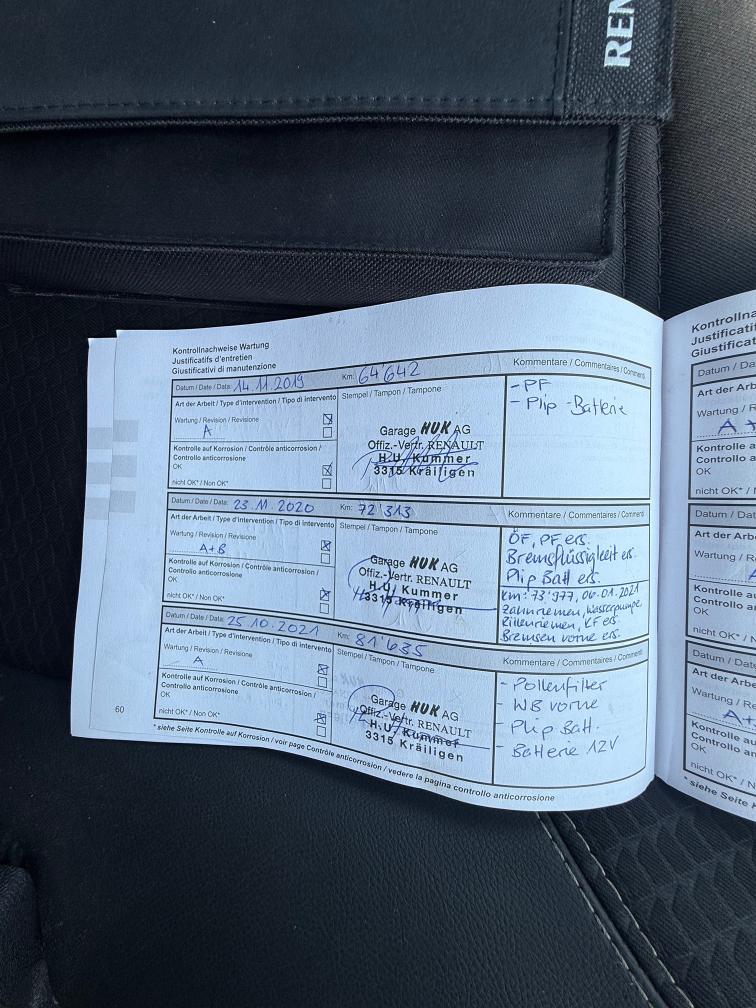 REN
Kontrollnachweise Wartung
Justificatifs d'entretien
Giustificativi di manutenzione
Datum / Date / Data: 14.11.2019 Km: 64'642 Kommentare / Commentaires / Commenti
Art der Arbeit / Type d'intervention / Tipo di intervento Stempel / Tampon / Tampone
Wartung / Revision / Revisione
A
Kontrolle auf Korrosion / Contrôle anticorrosion /
Controllo anticorrosione
OK
nicht OK* / Non OK*
Garage HUK AG
Offiz.-Vertr. RENAULT
H.U. Kummer
3315 Kräiligen
- PF
- Plip-Batterie
Datum / Date / Data: 23.11.2020 Km: 72'313 Kommentare / Commentaires / Commenti
Art der Arbeit / Type d'intervention / Tipo di intervento Stempel / Tampon / Tampone
Wartung / Revision / Revisione
A+B
Kontrolle auf Korrosion / Contrôle anticorrosion /
Controllo anticorrosione
OK
nicht OK* / Non OK*
Garage HUK AG
Offiz.-Vertr. RENAULT
H.U. Kummer
3315 Kräiligen
ÖF, PF ers.
Bremsflüssigkeit ers.
Plip Batt ers.
Km: 73'977, 06.01.2021
Zahnriemen, Wasserpumpe,
Rillenriemen, KF ers.
Bremsen vorne ers.
Datum / Date / Data: 25.10.2021 Km: 81'635 Kommentare / Commentaires / Commenti
Art der Arbeit / Type d'intervention / Tipo di intervento Stempel / Tampon / Tampone
Wartung / Revision / Revisione
A
Kontrolle auf Korrosion / Contrôle anticorrosion /
Controllo anticorrosione
OK
nicht OK* / Non OK*
Garage HUK AG
Offiz.-Vertr. RENAULT
H.U. Kummer
3315 Kräiligen
- Pollenfilter
- WB vorne
- Plip Batt.
- Batterie 12V
60
* siehe Seite Kontrolle auf Korrosion / voir page Contrôle anticorrosion / vedere la pagina controllo anticorrosione
Kontrollna
Justificati
Giustificat
Datum / Da
Art der Arbe
Wartung / R
A +
Kontrolle a
Controllo a
OK
nicht OK* / N
Datum / Date
Art der Arb
Wartung / R
Kontrolle au
Controllo an
OK
nicht OK* / No
Datum / Date
Art der Arbe
Wartung / Re
A+
Kontrolle au
Controllo an
OK
nicht OK* / N
* siehe Seite K